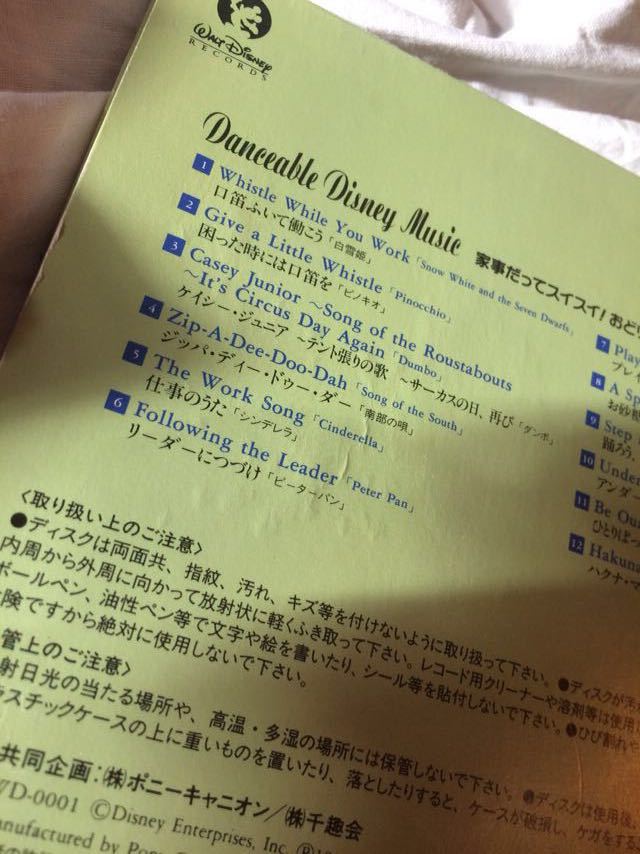 WALT DISNEY
RECORDS
Danceable Disney Music 家事だってスイスイ!おど
1 Whistle While You Work「Snow White and the Seven Dwarfs」
口笛ふいて働こう「白雪姫」
2 Give a Little Whistle「Pinocchio」
困った時には口笛を「ピノキオ」
3 Casey Junior ~Song of the Roustabouts
~It's Circus Day Again「Dumbo」
ケイシー・ジュニア ~テント張りの歌 ~サーカスの日、再び「ダンボ」
4 Zip-A-Dee-Doo-Dah「Song of the South」
ジッパ・ディー・ドゥー・ダー「南部の唄」
5 The Work Song「Cinderella」
仕事のうた「シンデレラ」
6 Following the Leader「Peter Pan」
リーダーにつづけ「ピーターパン」
7 Play
プレイ
8 A Sp
お砂糖
9 Step
踊ろう、
10 Under
アンダー
11 Be Ou
ひとりぼっ
12 Hakuna
ハクナ・マ
〈取り扱い上のご注意〉
●ディスクは両面共、指紋、汚れ、キズ等を付けないように取り扱って下さい。●ディスクが汚れ
内周から外周に向かって放射状に軽くふき取って下さい。レコード用クリーナーや溶剤等は使用
ボールペン、油性ペン等で文字や絵を書いたり、シール等を貼付しないで下さい。●ひび割れ
険ですから絶対に使用しないで下さい。
管上のご注意〉
射日光の当たる場所や、高温・多湿の場所には保管しないで下さい。●ディスクは使用後、
ラスチックケースの上に重いものを置いたり、落としたりすると、ケースが破損し、ケガをする
共同企画:㈱ポニーキャニオン/㈱千趣会
D-0001 ©Disney Enterprises, Inc.
anufactured by Pon